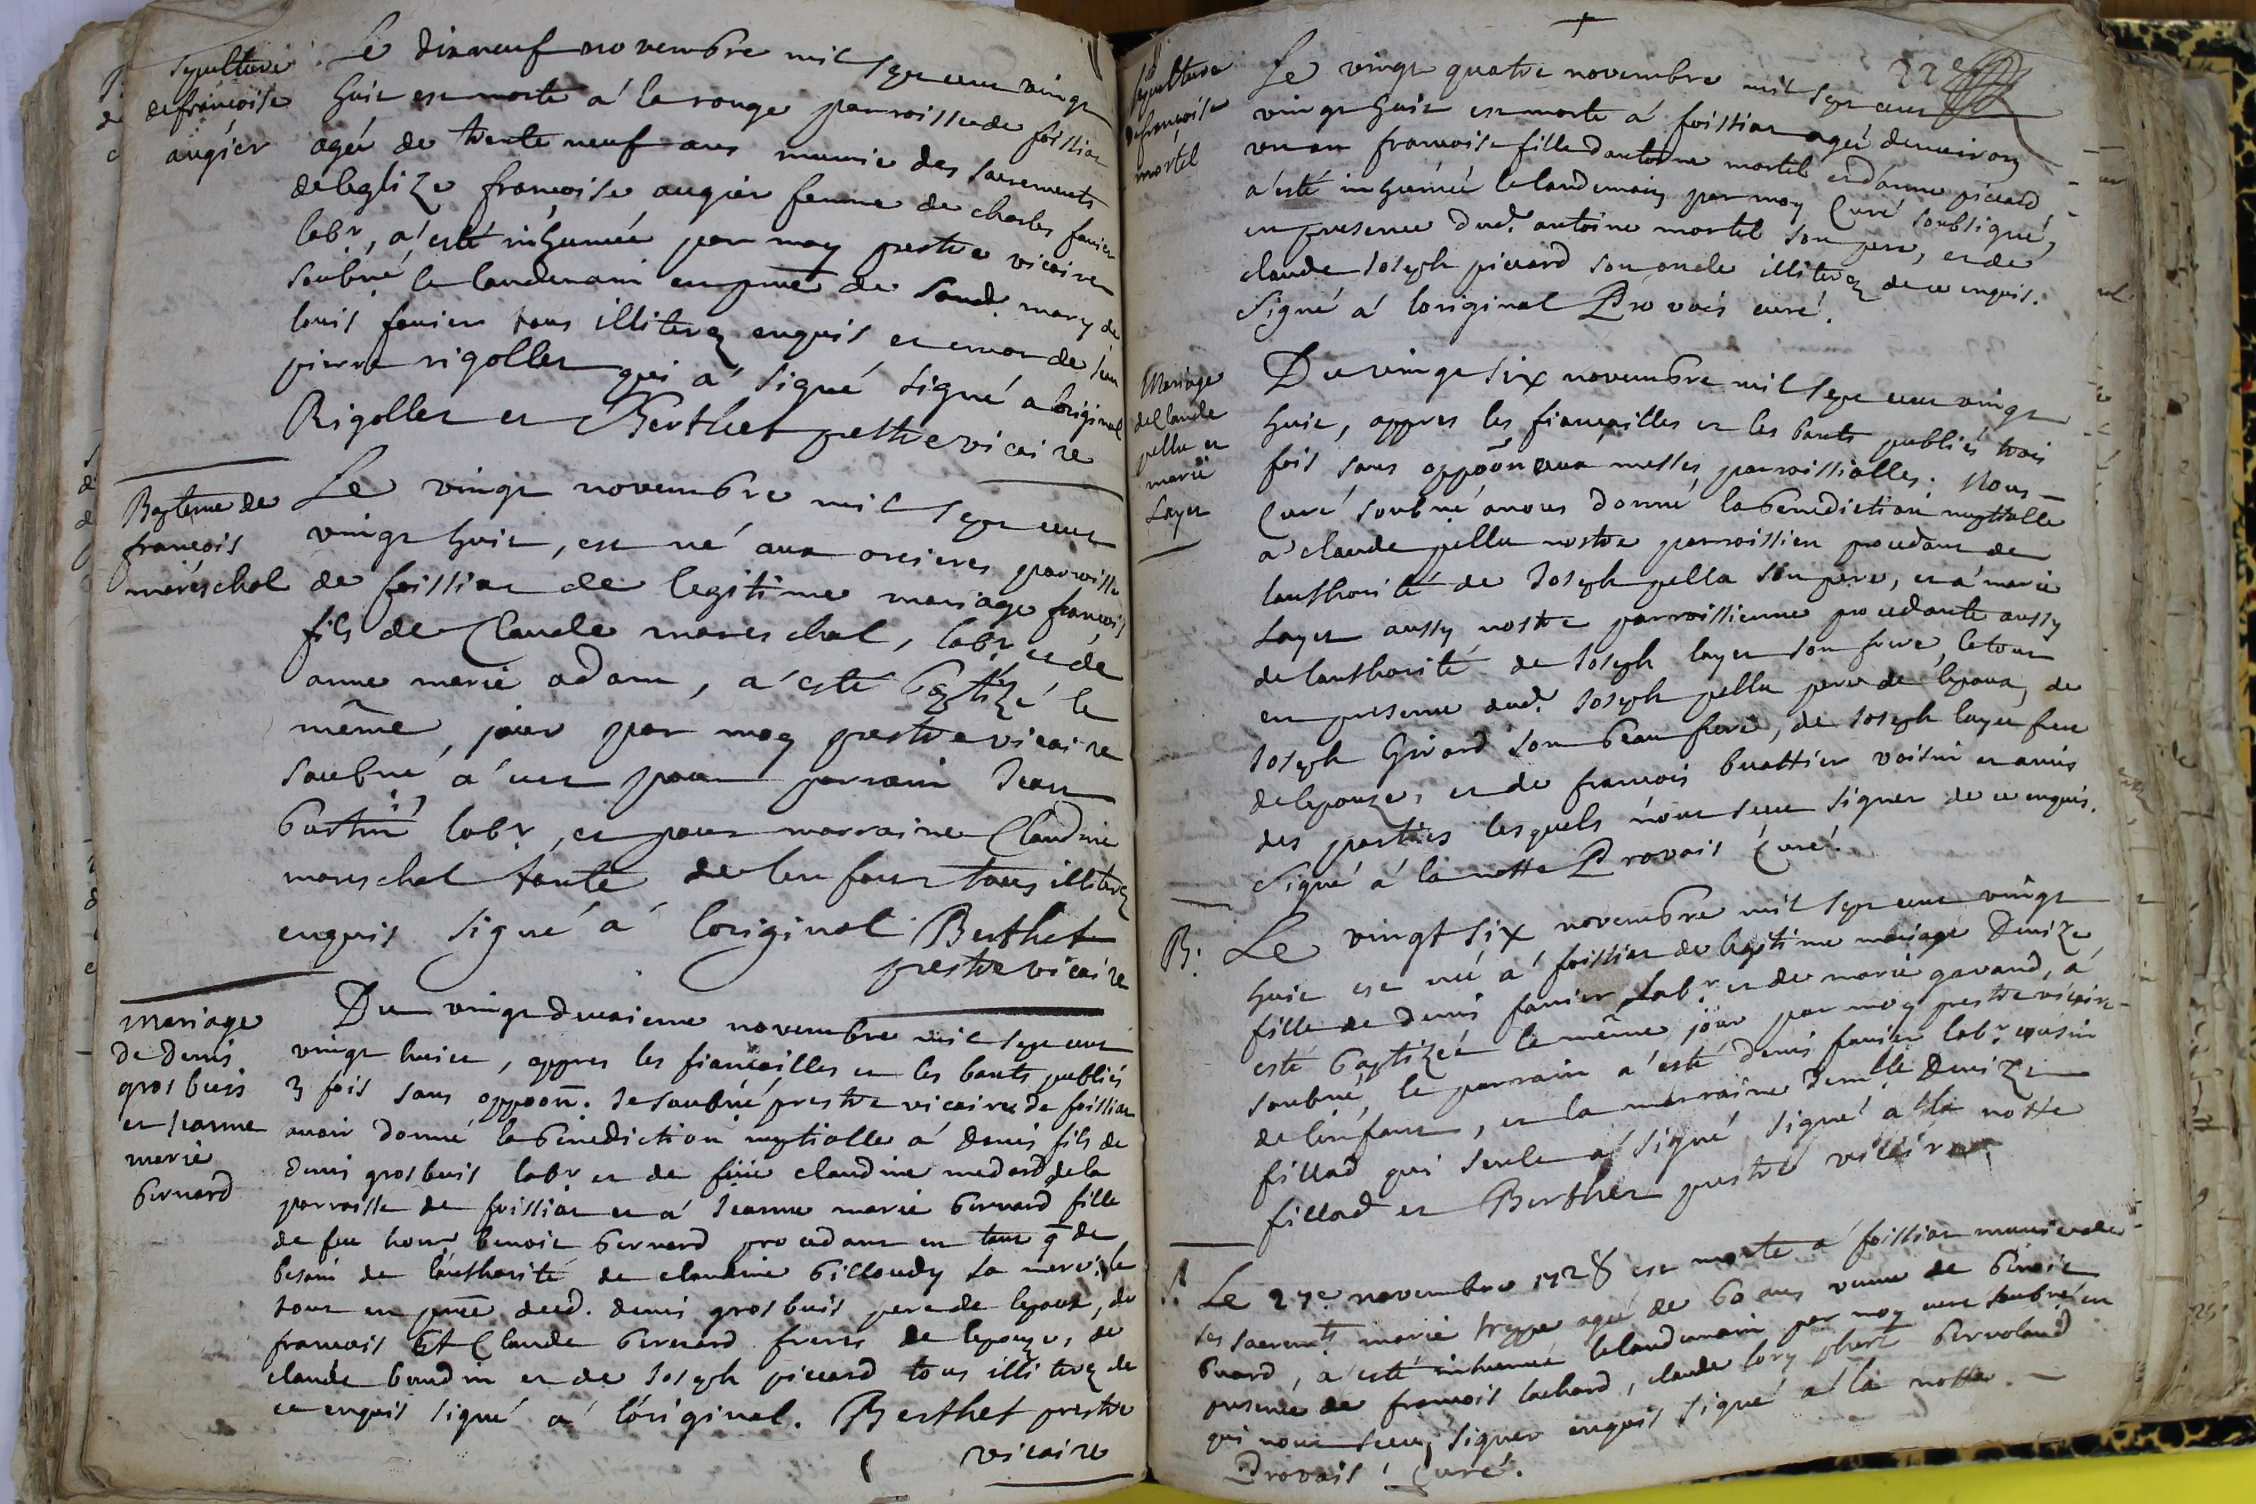 Sepulture
de francoise
augier
Le dixneuf novembre mil sept cent vingt
huit est morte a la rouge parroisse de foissiat
agée de trente neuf ans munie des sacrements
de leglize francoise augier femme de charles favier
labr, a esté inhumée par moy prestre vicaire
soubné le landemain en pnce de sond. mary de
louis favier tous illiterez enquis et encor de sieur
pierre rigollet qui a signé signé a loriginal
Rigollet et Berthet prestre vicaire
Bapteme de
francois
mareschal
Le vingt novembre mil sept cent
vingt huit, est né aux orcieres parroisse
de foissiat de legitime mariage francois
fils de Claude mareschal, labr et de
anne marie adam, a esté baptizé le
même jour par moy prestre vicaire
soubné, a eut pour parrain Jean
labr, et pour marraine Claudine
mareschal tante de lenfant tous illiterez
enquis signé a loriginal Berthet
prestre vicaire
Mariage
de denis
grosbuis
et jeanne
marie
bernard
Du vingt deuxieme novembre mil sept cent
vingt huict, appres les fiancailles et les bants publiés
3 fois sans oppoôn. Je soubné prestre vicaire de foissiat
avoir donné la benediction nuptialle a denis fils de
denis grosbuis labr et de feüe claudine medard de la
parroisse de foissiat et a Jeanne marie bernard fille
de feu hon. benoit bernard procedant en tant q de
besoin de lauthorité de claudine billoudy sa mere, le
tout en pnce dud. denis grosbuis pere de lepoux, de
francois Et Claude bernard freres de lepouze, de
claude boudin et de Joseph piccard tous illiterez de
ce enquis signé a loriginal. Berthet prestre
vicaire
22e
Sepulture
de francoise
mortel
Le vingt quatre novembre mil sept cent
vingt huit est morte a foissiat agée denviron
un an francoise fille dantoine mortel et danne piccard,
a esté inhumée le landemain par moy Curé soubsigné,
en presence dud. antoine mortel son pere, et de
claude Joseph piccard son oncle illiterez de ce enquis.
Signé a loriginal Provais curé.
Mariage
de Claude
pella et
marie
Layer
Du vingt six novembre mil sept cent vingt
huit, appres les fiancailles et les bants publiés trois
fois sans oppoôn aux messes parroissialles. Nous
Curé soubné avons donné la benediction nuptialle
a claude pella nostre parroissien procedant de
lauthorité de Joseph pella son pere, et a marie
Layer aussy nostre parroissienne procedante aussy
de lauthorité de Joseph layer son frere, le tout
en presence dud. Joseph pella pere de lepoux, de
Joseph Girard son beau frere, de Joseph layer frere
de lepouze, et de francois buattier voisin et amis
des parties lesquels n'ont sceu signer de ce enquis.
Signé a la notte Provais Curé.
B.
Le vingt six novembre mil sept cent vingt
huit est née a foissiat de legitime mariage Denize
fille de denis favier Labr et de marie gavand, a
esté baptizée le même jour par moy prestre vicaire
soubné, le parrain a esté denis favier labr cousin
de lenfant, et la marraine demlle Denize
fillod qui seule a signé signé a la notte
fillod et Berthet prestre vicaire
S.
Le 27e novembre 1728 est morte a foissiat munie de
ses sacremts marie agée de 60 ans veuve de benoit
buard, a esté inhumée le landemain par moy curé soubné en
presence de francois lachard, claude lory phert bernoland
qui n'ont sceu signer enquis signé a la notte.
Provais Curé.